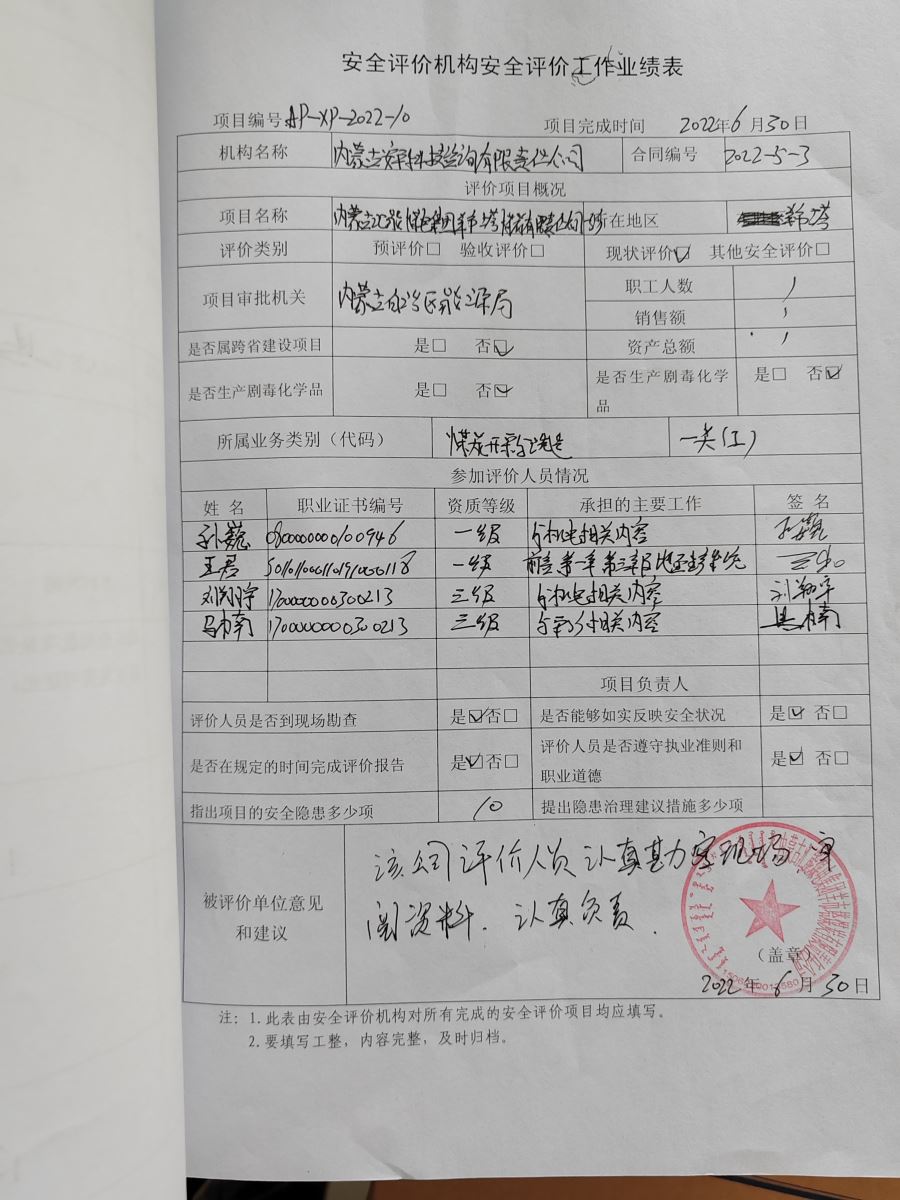 安全评价机构安全评价工作业绩表
项目编号 AP-XP-2022-10 项目完成时间 2022年6月30日
机构名称 内蒙古 科技咨询有限责任公司 合同编号 2022-5-3
评价项目概况
项目名称 内蒙古 集团 有限责任公司 所在地区
评价类别 预评价□ 验收评价□ 现状评价☑ 其他安全评价□
项目审批机关 内蒙古自治区能源局 职工人数 /
销售额 /
是否属跨省建设项目 是□ 否☑ 资产总额 /
是否生产剧毒化学品 是□ 否☑ 是否生产剧毒化学品 是□ 否☑
所属业务类别(代码) 煤炭开采 一类(1)
参加评价人员情况
姓名 职业证书编号 资质等级 承担的主要工作 签名
孙巍 0800000000100946 一级 与机电相关内容 孙巍
王君 一级 前言 第一章 第三章
刘翔宇 1700000000300213 三级 与机电相关内容 刘翔宇
马楠 1700000000300213 三级 相关内容 马楠
项目负责人
评价人员是否到现场勘查 是☑否□ 是否能够如实反映安全状况 是☑ 否□
是否在规定的时间完成评价报告 是☑否□ 评价人员是否遵守执业准则和职业道德 是☑ 否□
指出项目的安全隐患多少项 10 提出隐患治理建议措施多少项
被评价单位意见和建议
该公司评价人员认真勘察现场、审
阅资料、认真负责.
(盖章)
2022年6月30日
注:1.此表由安全评价机构对所有完成的安全评价项目均应填写。
2.要填写工整,内容完整,及时归档。